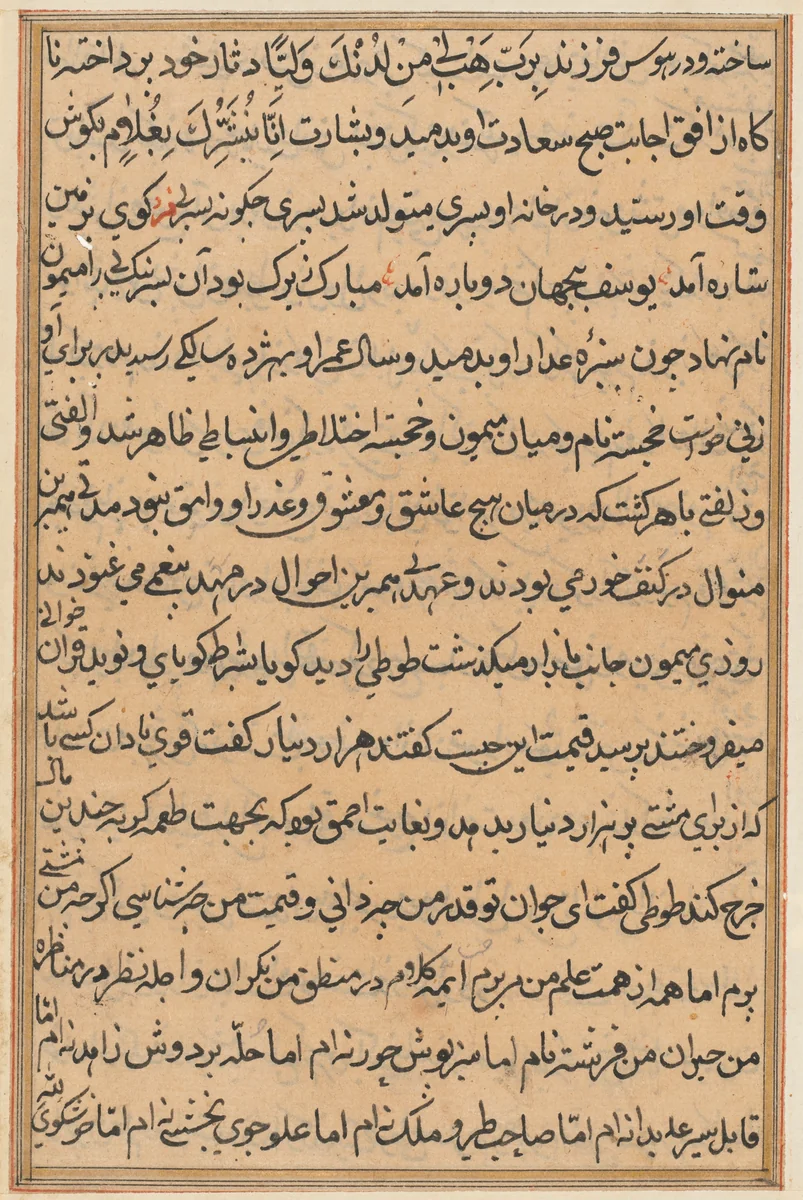 ساخته و در هوس فرزند بِرَبّ هَبْ لِي مِنْ لَدُنْكَ وَلِيًّا دثار خود برداخته نا
كاه از افق اجابت صبح سعادت او بدميد و بشارت اِنَّا نُبَشِّرُكَ بِغُلاٍم بكوش
وقت او رسيد و در خانه او پسري متولد شد پسرى جكونه پسرى فرد كوي بر زمين
ستاره آمد يوسف بجهان دوباره آمد مبارك زيرك بود آن پسر نيك پى را ميمون
نام نهاد جون سبزه عذار او بدميد و سال عمر او بهژده سالكے رسيد پدر براي او
زني خواست خجسته نام و ميان ميمون و خجسته اختلاطي و انبساطي ظاهر شد و الفتى
و زلفتے باهر كشت كه در ميان هيج عاشق و معشوق و عذرا و وامق نبود مدتے همبرين
منوال در كنف خود مي بودند و عهدے همبرين احوال در مهد تنعم مي غنودند
روزي ميمون جانب بازار ميكذشت طوطي را ديد كويا بشرايط كوياي و نويد قران خوانے
ميفروختند پرسيد قيمت اين جيست كفتند هزار دينار كفت قوي نادان كسے باشد
كه از براي مشتے پر هزار دينار بدهد و بغايت احمق بود كه بجهت طعمه كربه جندين مال
خرج كند طوطي كفت اى جوان تو قدر من جه داني و قيمت من جه شناسي اكر جه من مشتے
پرم اما همه از همت علم من مى پرم ايمه كلام در منطق من نكران و اجله نظر در مناظره
من حيران من فرشته نام اما سبزپوش حور نه ام اما حلّه بر دوش زاهد نه ام اما
قابل سير عابد نه ام امّا صاحب طير و ملك نه ام اما علوجوي بخشے نه ام امّا خوشكوي